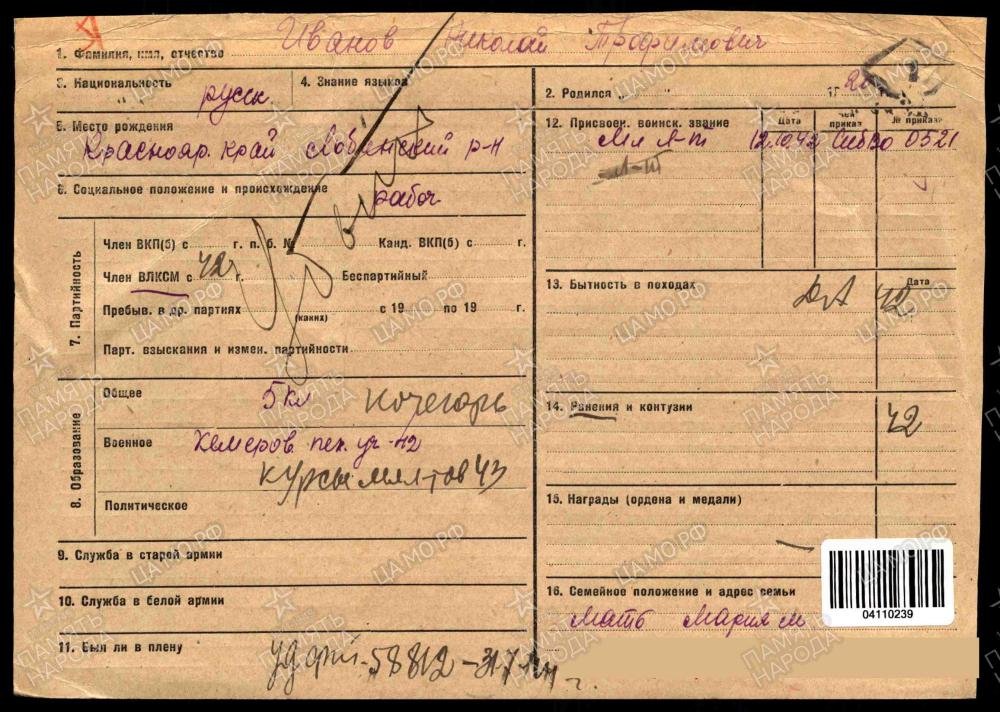 1. Фамилия, имя, отчество Иванов Николай Трофимович
3. Национальность русск.
4. Знание языков
5. Место рождения
Краснояр. край р-н
6. Социальное положение и происхождение рабоч
7. Партийность
Член ВКП(б) с г. п. б. № Канд. ВКП(б) с г.
Член ВЛКСМ с 42 г. Беспартийный
Пребыв. в др. партиях (каких) с 19 г. по 19 г.
Парт. взыскания и измен. партийности
Убыл
8. Образование
Общее 5 кл кочегарь
Военное Кемеров. пех. уч-42
курсы мл л-тов 43
Политическое
9. Служба в старой армии
10. Служба в белой армии
11. Был ли в плену
2. Родился „ “ 19 г.
12. Присвоен. воинск. звание Дата Чей приказ № приказа
Мл л-т 12.10.42 СибВО 0521
л-т
13. Бытность в походах Дата
ДА 42
14. Ранения и контузии 42
15. Награды (ордена и медали)
—
16. Семейное положение и адрес семьи
Мать Мария М
04110239
ПАМЯТЬ НАРОДА
ЦАМО.РФ